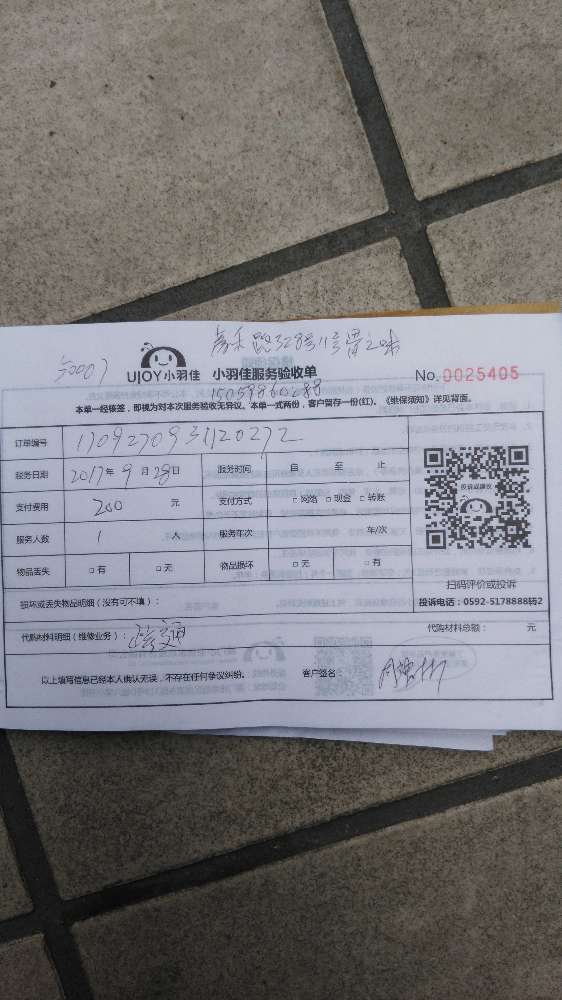 路329号11号 之味
UJOY小羽佳 小羽佳服务验收单 No. 0025405
15059860288
本单一经接签，即视为对本次服务验收无异议。本单一式两份，客户留存一份(红)。《维保须知》详见背面。
订单编号
服务日期 2017年 9 月 28 日 服务时间 自 至 止
支付费用 200 元 支付方式 □ 网络 □ 现金 □ 转账
投诉或建议
服务人数 1 人 服务车次 车/次
物品丢失 □ 有 □ 无 物品损坏 □ 无 □ 有
扫码评价或投诉
损坏或丢失物品明细（没有可不填）：
投诉电话：0592-5178888转2
代购材料明细（维修业务）： 疏通 代购材料总额： 元
以上填写信息已经本人确认无误，不存在任何争议纠纷。 客户签名：